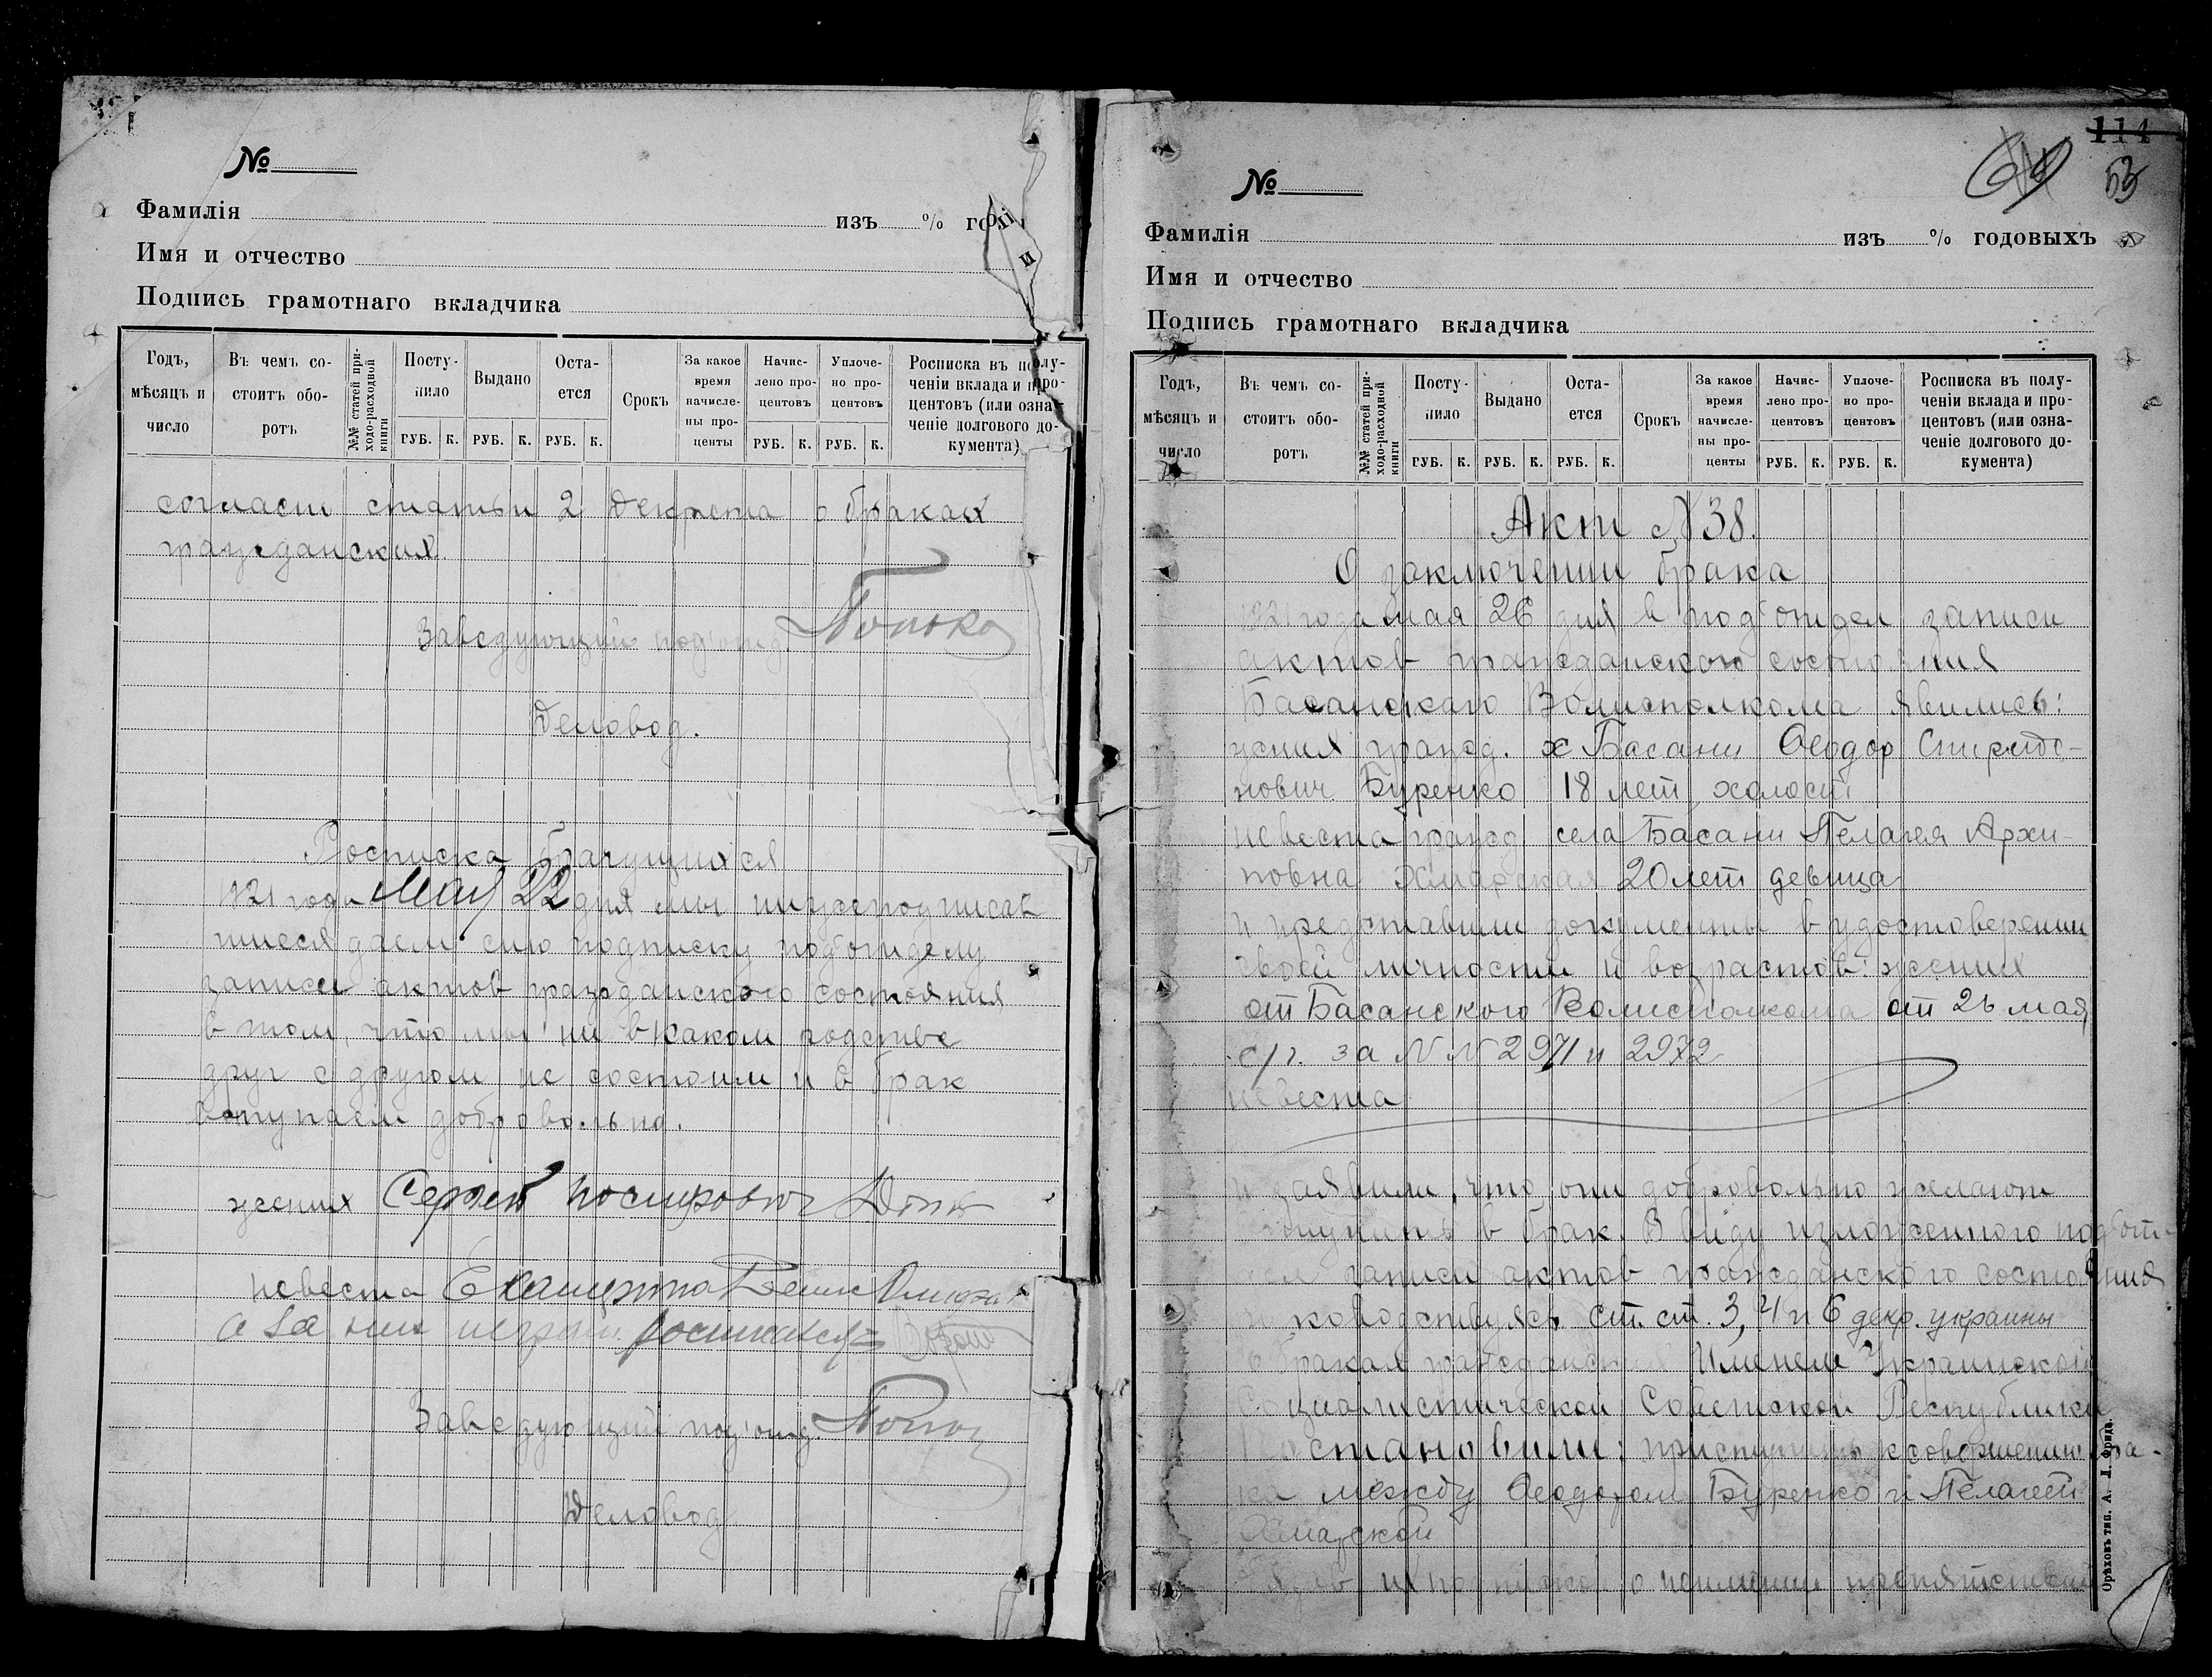 №
Фамилія из ъ % го
Имя и отчество
Подпись грамотнаго вкладчика
Годъ, мѣсяцъ и число
Въ чемъ состоитъ оборотъ
№№ статей приходо-расходной книги
Поступило
РУБ. К.
Выдано
РУБ. К.
Остается
РУБ. К.
Срокъ
За какое время начислены проценты
Начислено процентовъ
РУБ. К.
Уплочено процентовъ
РУБ. К.
Росписка въ полученіи вклада и процентовъ (или означеніе долгового документа)
согласно статьи 2 Декрета о браках
гражданских.
Заведующий под'отд.
Деловод.
Росписка брачущихся
1921 года Мая 22 дня мы нижеподписав
шиеся даем сию подписку под'отделу
записи актов гражданского состояния
в том, что мы ни в каком родстве
друг с другом не состоим и в брак
вступаем добровольно.
жених Сергей
невеста
а за них неграм. росписался
Заведующий под'отд.
Деловод
114
69
53
№
Фамилія изъ % годовыхъ
Имя и отчество
Подпись грамотнаго вкладчика
Годъ, мѣсяцъ и число
Въ чемъ состоитъ оборотъ
№№ статей приходо-расходной книги
Поступило
РУБ. К.
Выдано
РУБ. К.
Остается
РУБ. К.
Срокъ
За какое время начислены проценты
Начислено процентовъ
РУБ. К.
Уплочено процентовъ
РУБ. К.
Росписка въ полученіи вклада и процентовъ (или означеніе долгового документа)
Акт N 38.
О заключении брака
1921 года мая 26 дня в под'отдел записи
актов гражданского состояния
Басанскаго Волисполкома явились:
жених гражд. х Басани Феодор Спиридо-
нович Буренко 18 лет, холост
невеста гражд села Басани Пелагея Архи-
повна Хмарская 20 лет девица
и представили документы в удостоверении
своей личности и возрастов: жених
от Басанского Волисполкома от 26 мая
с/г. за N N 2971 и 2972
невеста
и заявили, что они добровольно желают
вступить в брак. В виду изложенного под'от-
дел записи актов гражданского состояния
руководствуясь ст. ст. 3, 4 и 6 декр. украины
О браках гражданских Именем Украинской
Социалистической Советской Республики
Постановили: приступить к совершению бра-
ка между Феодором Буренко и Пелагеей
Хмарской
их подписко о неимении препятствий
Орѣховъ тип. А. Л. Фрида.